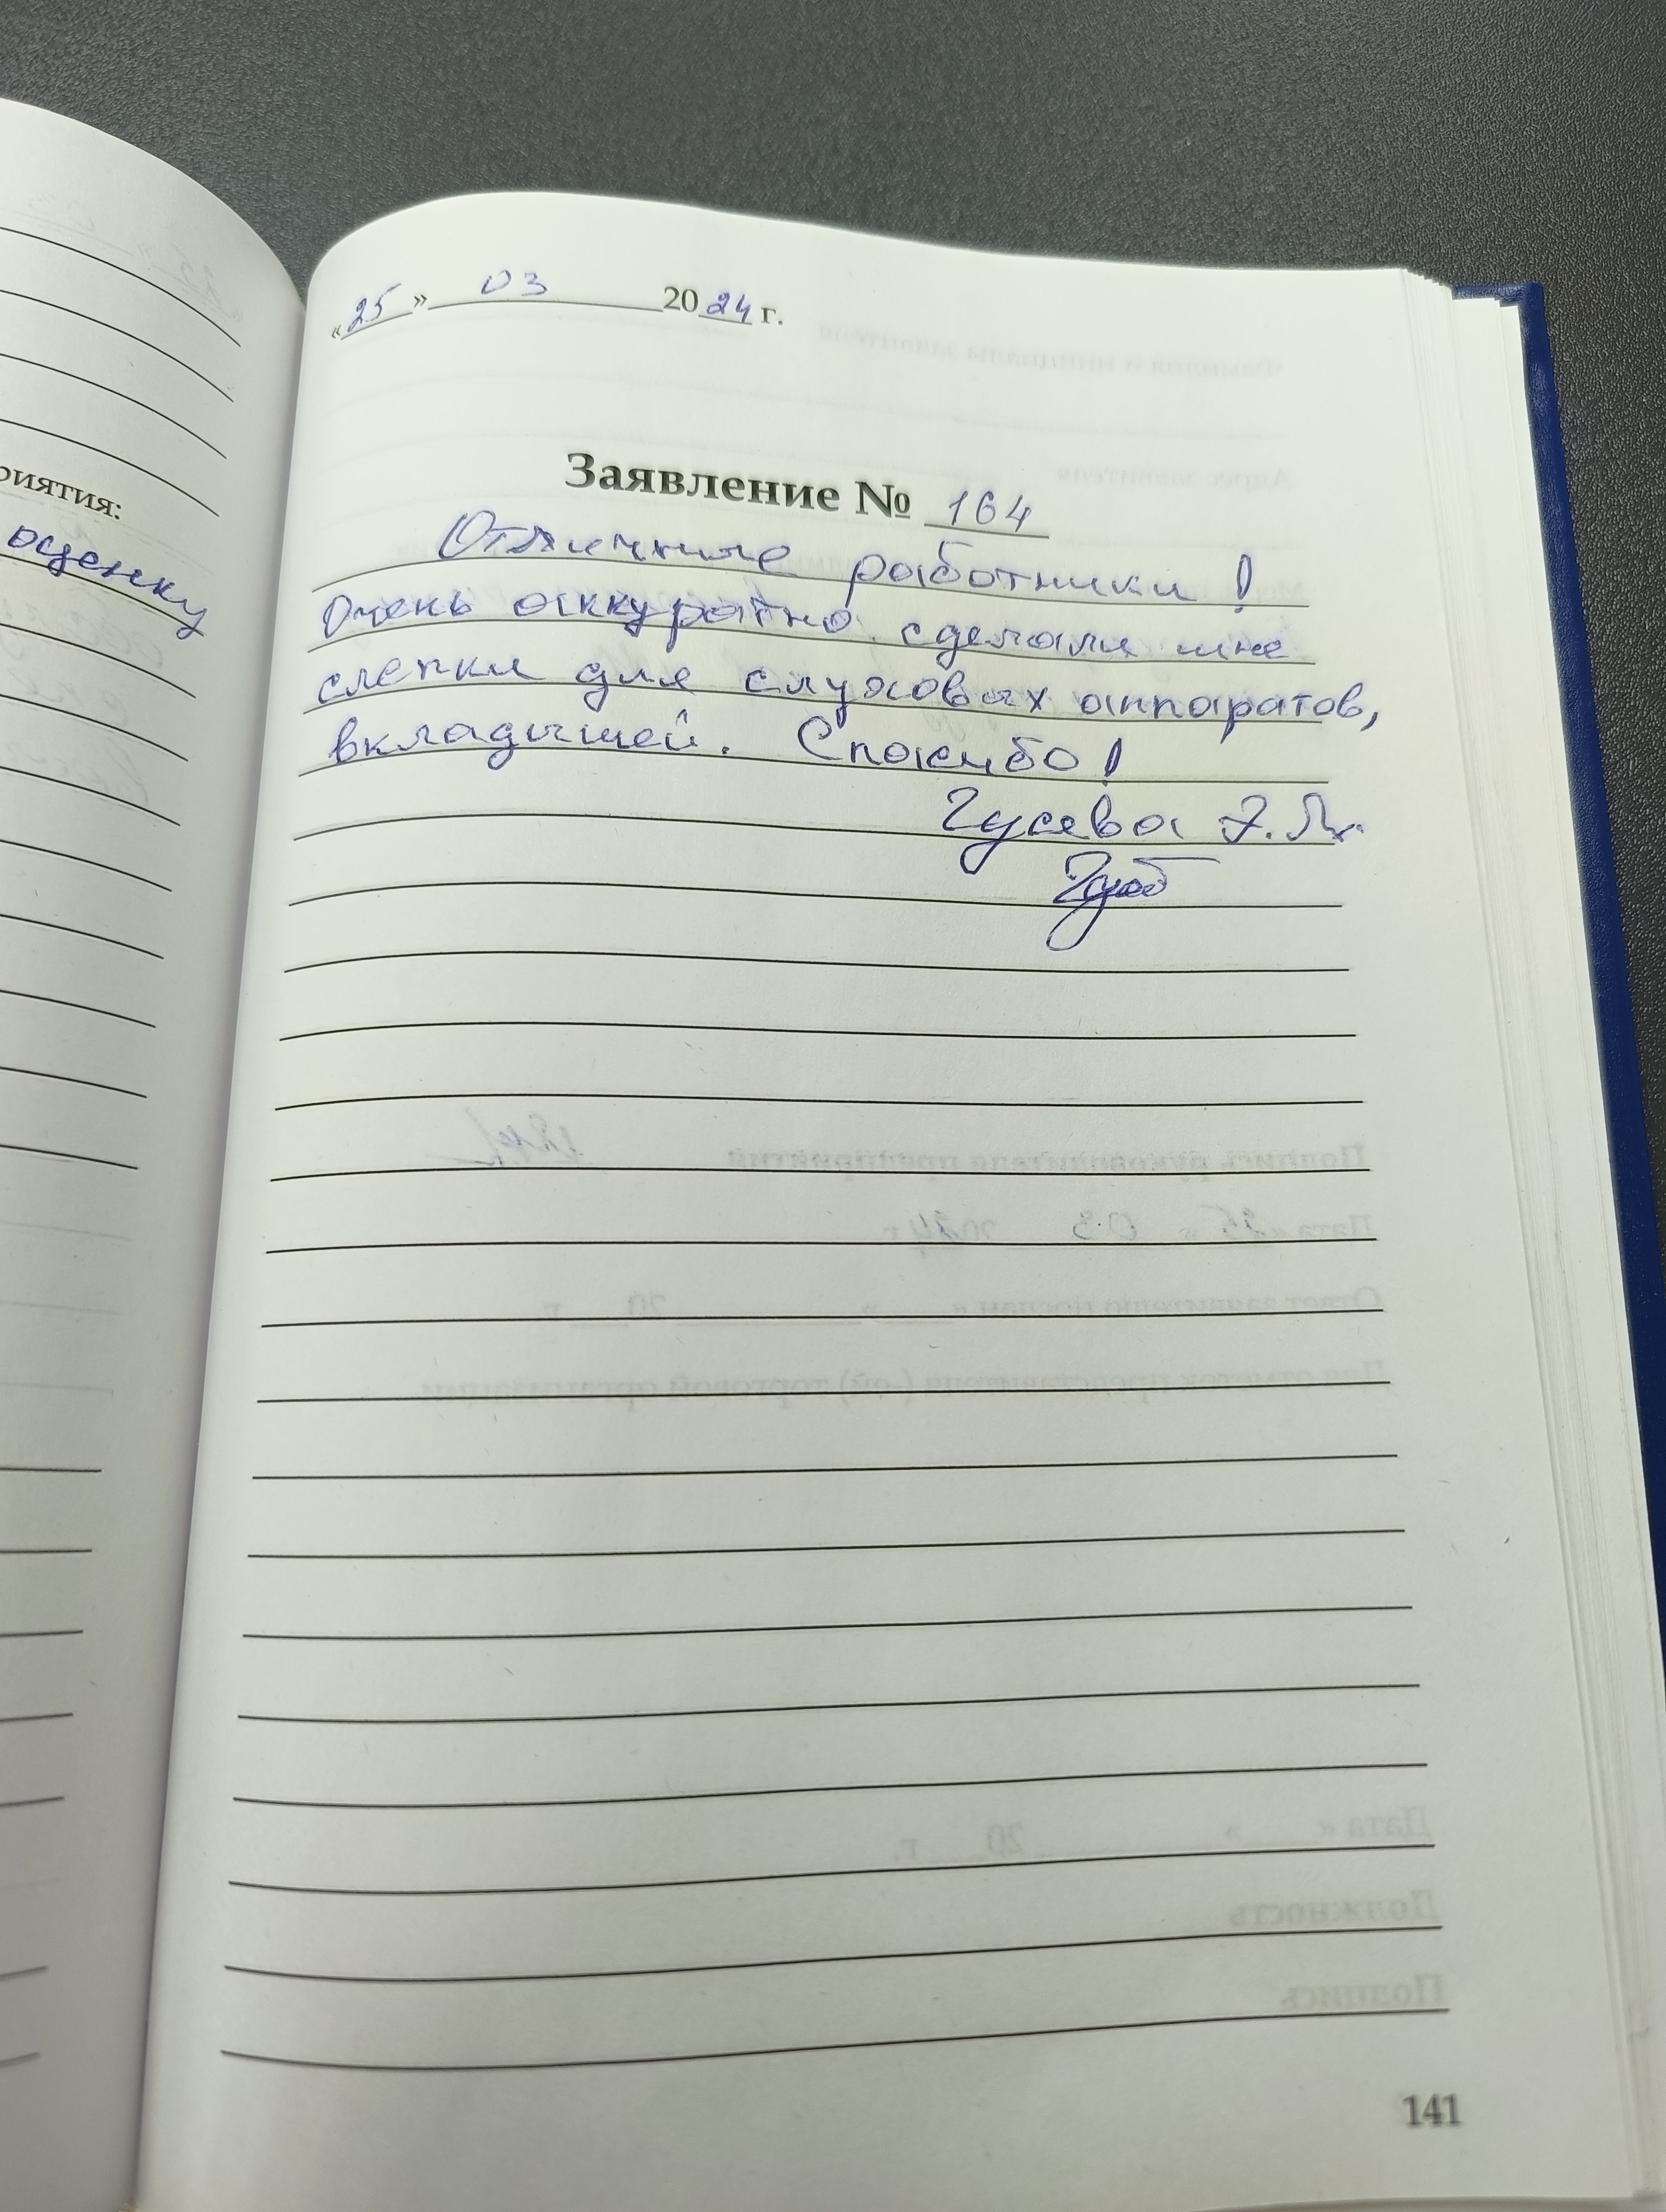 риятия:
оценку
«25» 03 2024 г.
Заявление № 164
Отличные работники!
Очень аккуратно сделали мне
слепки для слуховых аппаратов,
вкладышей. Спасибо!
Гусева Э. Л.
141